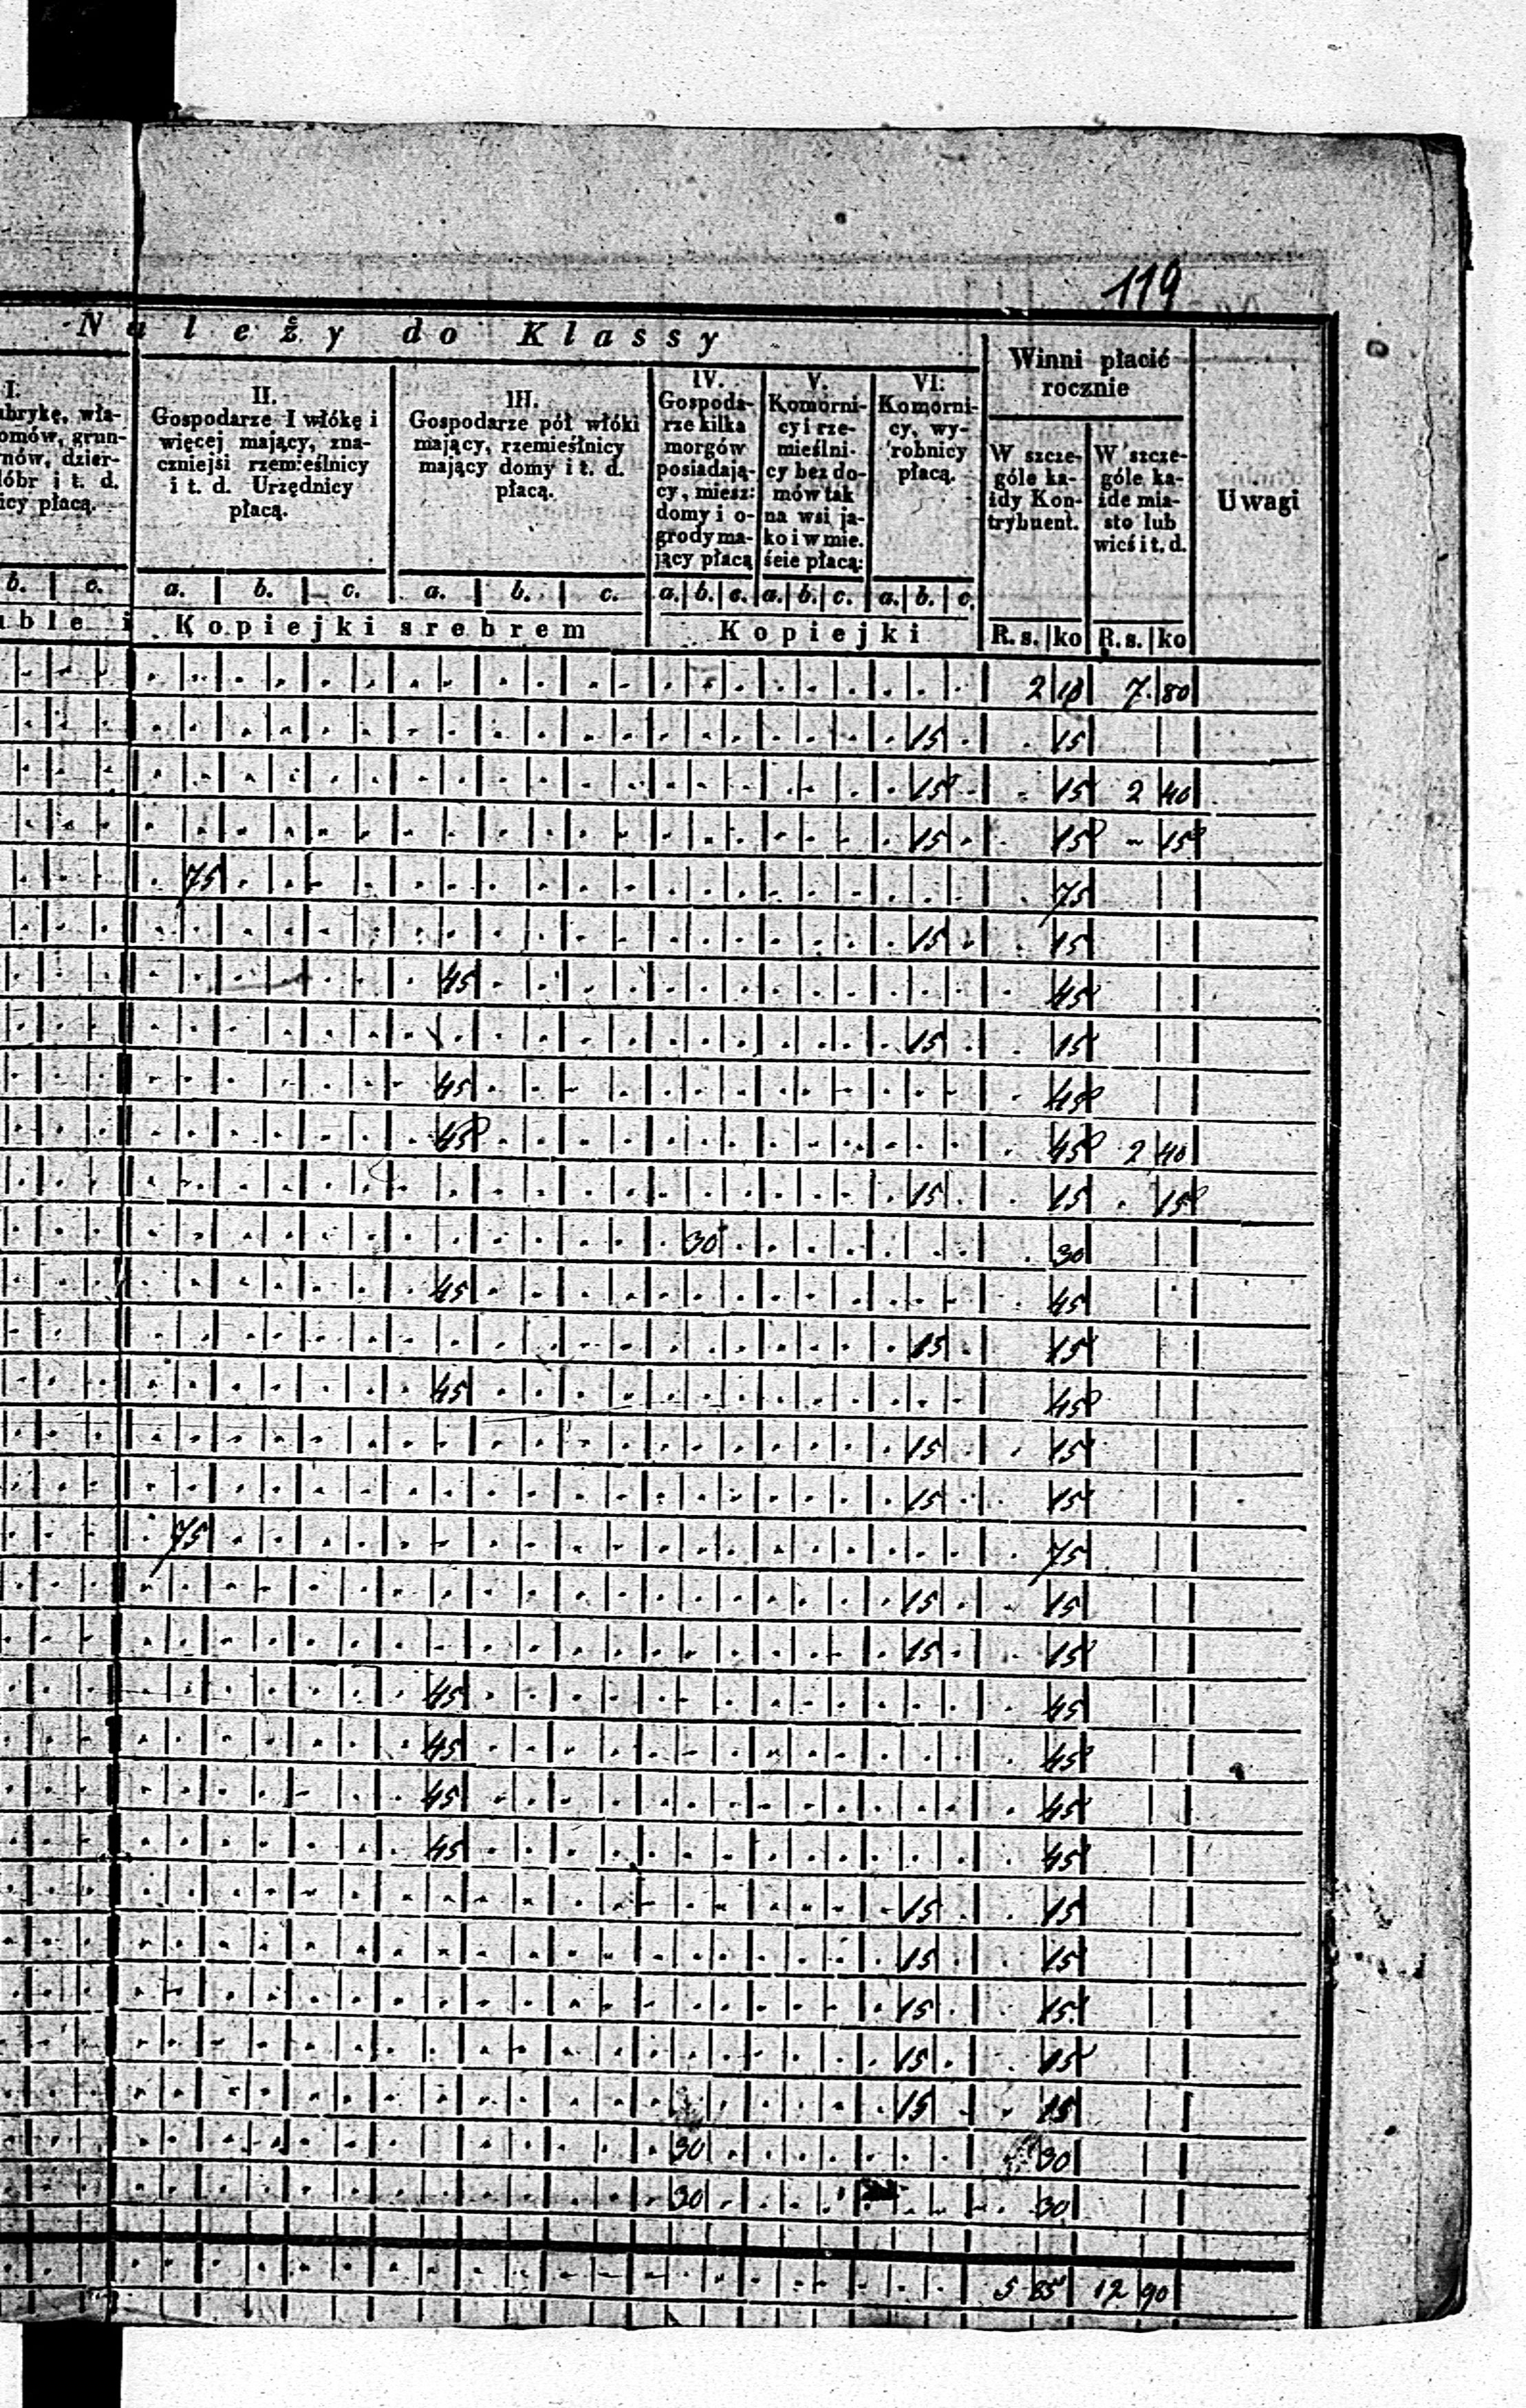 119
Należy do Klassy
Winni płacić
rocznie
I.
brykę, wła-
omów, grun-
nów, dzier-
óbr i t. d.
icy płacą.
II.
Gospodarze I włókę i
więcej mający, zna-
czniejsi rzemieślnicy
i t. d. Urzędnicy
płacą.
III.
Gospodarze pół włóki
mający, rzemieślnicy
mający domy i t. d.
płacą.
IV.
Gospoda-
rze kilka
morgów
posiadają-
cy, miesz:
domy i o-
grody ma-
jący płacą
V.
Komorni-
cy i rze-
mieślni-
cy bez do-
mów tak
na wsi ja-
ko i w mie.
ście płacą:
VI.
Komorni-
cy, wy-
robnicy
płacą.
W szcze-
góle ka-
żdy Kon-
trybuent.
W szcze-
góle ka-
żde mia-
sto lub
wieś i t. d.
Uwagi
b. c. a. b. c. a. b. c. a. b. c. a. b. c. a. b. c.
ble i Kopiejki srebrem Kopiejki R. s. ko R. s. ko
2 10 7 80
15 15
15 15 2 40
15 15 - 15
75 75
15 15
45 45
15 15
45 45
45 45 2 40
15 15 . 15
30 30
45 45
15 15
45 45
15 15
15 15
75 75
15 15
15 15
45 45
45 45
45 45
45 45
15 15
15 15
15 15
15 15
15 15
30 30
30 30
5 85 12 90